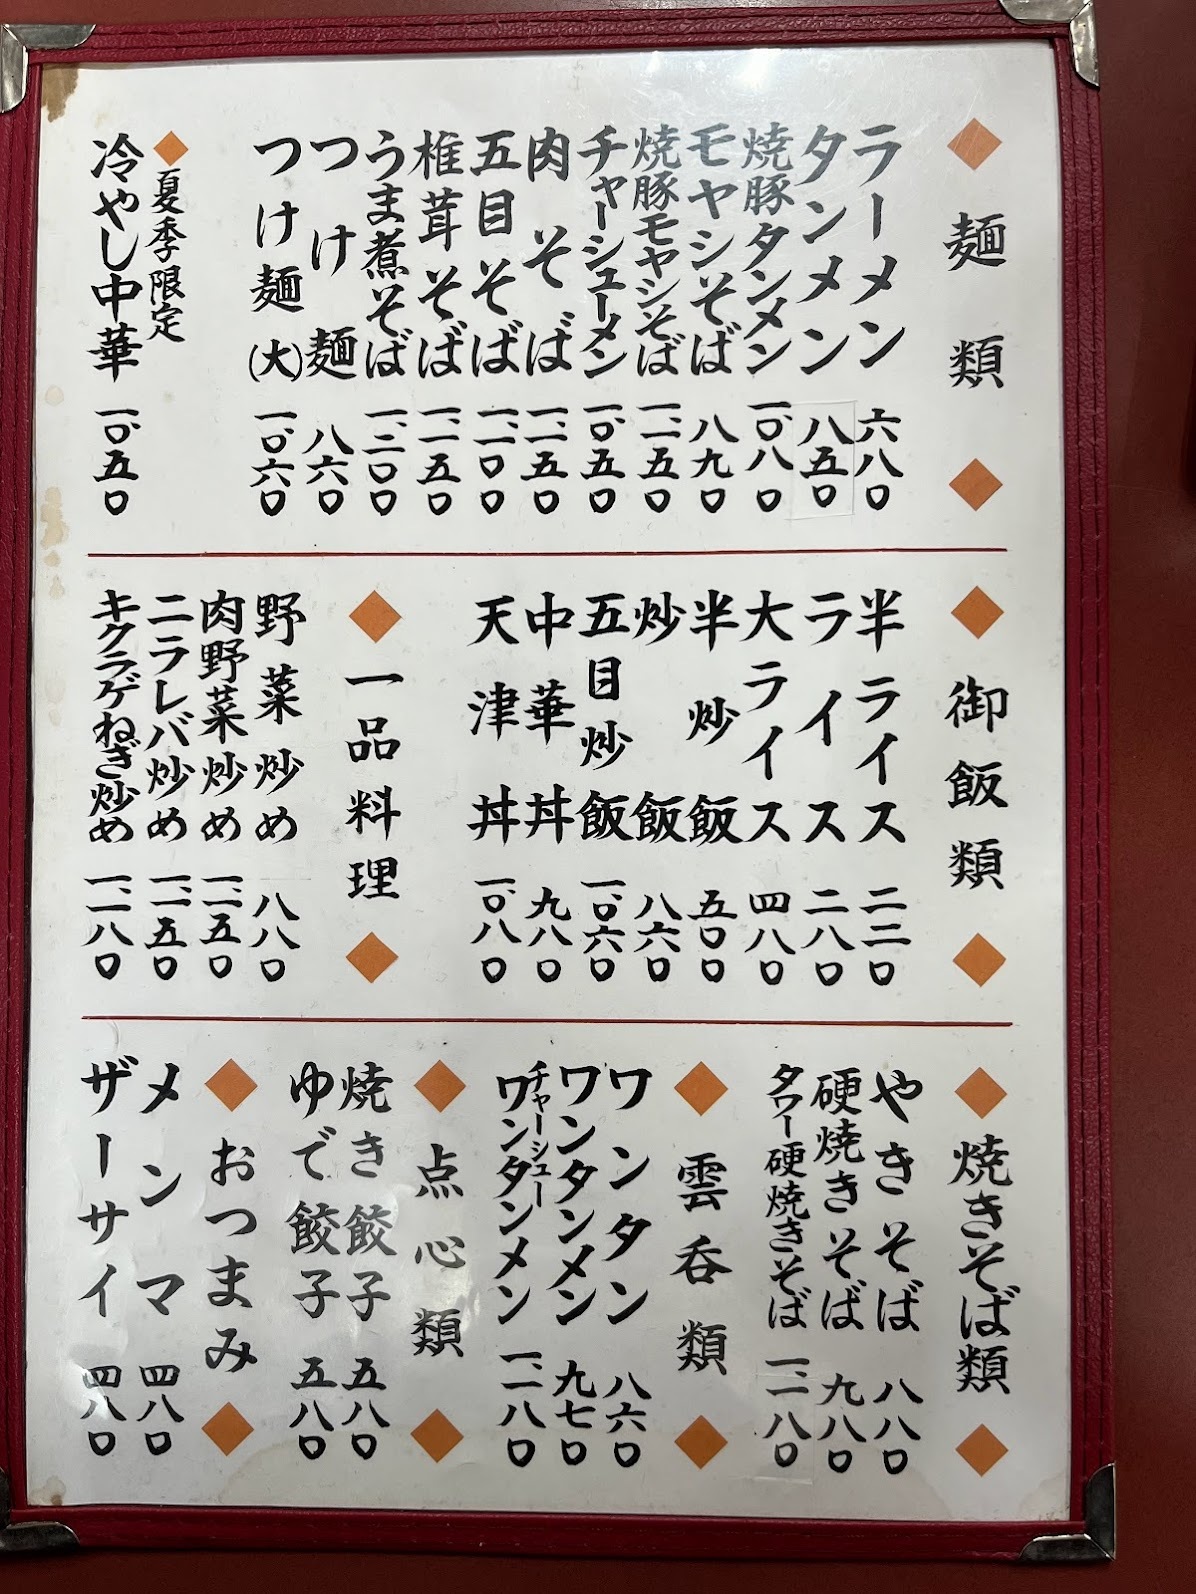 ◆麺類◆
ラーメン 六八〇
タンメン 八五〇
焼豚タンメン 一、〇八〇
モヤシそば 八九〇
焼豚モヤシそば 一、一五〇
チャーシューメン 一、〇五〇
肉そば 一、一五〇
五目そば 一、一〇〇
椎茸そば 一、一五〇
うま煮そば 一、二〇〇
つけ麺 八六〇
つけ麺(大) 一、〇六〇
◆夏季限定
冷やし中華 一、〇五〇
◆御飯類◆
半ライス 二二〇
ライス 二八〇
大ライス 四八〇
半炒飯 五〇〇
炒飯 八六〇
五目炒飯 一、〇六〇
中華丼 九八〇
天津丼 一、〇八〇
◆一品料理◆
野菜炒め 八八〇
肉野菜炒め 一、一五〇
ニラレバ炒め 一、一五〇
キクラゲねぎ炒め 一、一八〇
◆焼きそば類◆
やきそば 八八〇
硬焼きそば 九八〇
タワー硬焼きそば 一、一八〇
◆雲呑類◆
ワンタン 八六〇
ワンタンメン 九七〇
チャーシューワンタンメン 一、二八〇
◆点心類◆
焼き餃子 五八〇
ゆで餃子 五八〇
◆おつまみ◆
メンマ 四八〇
ザーサイ 四八〇